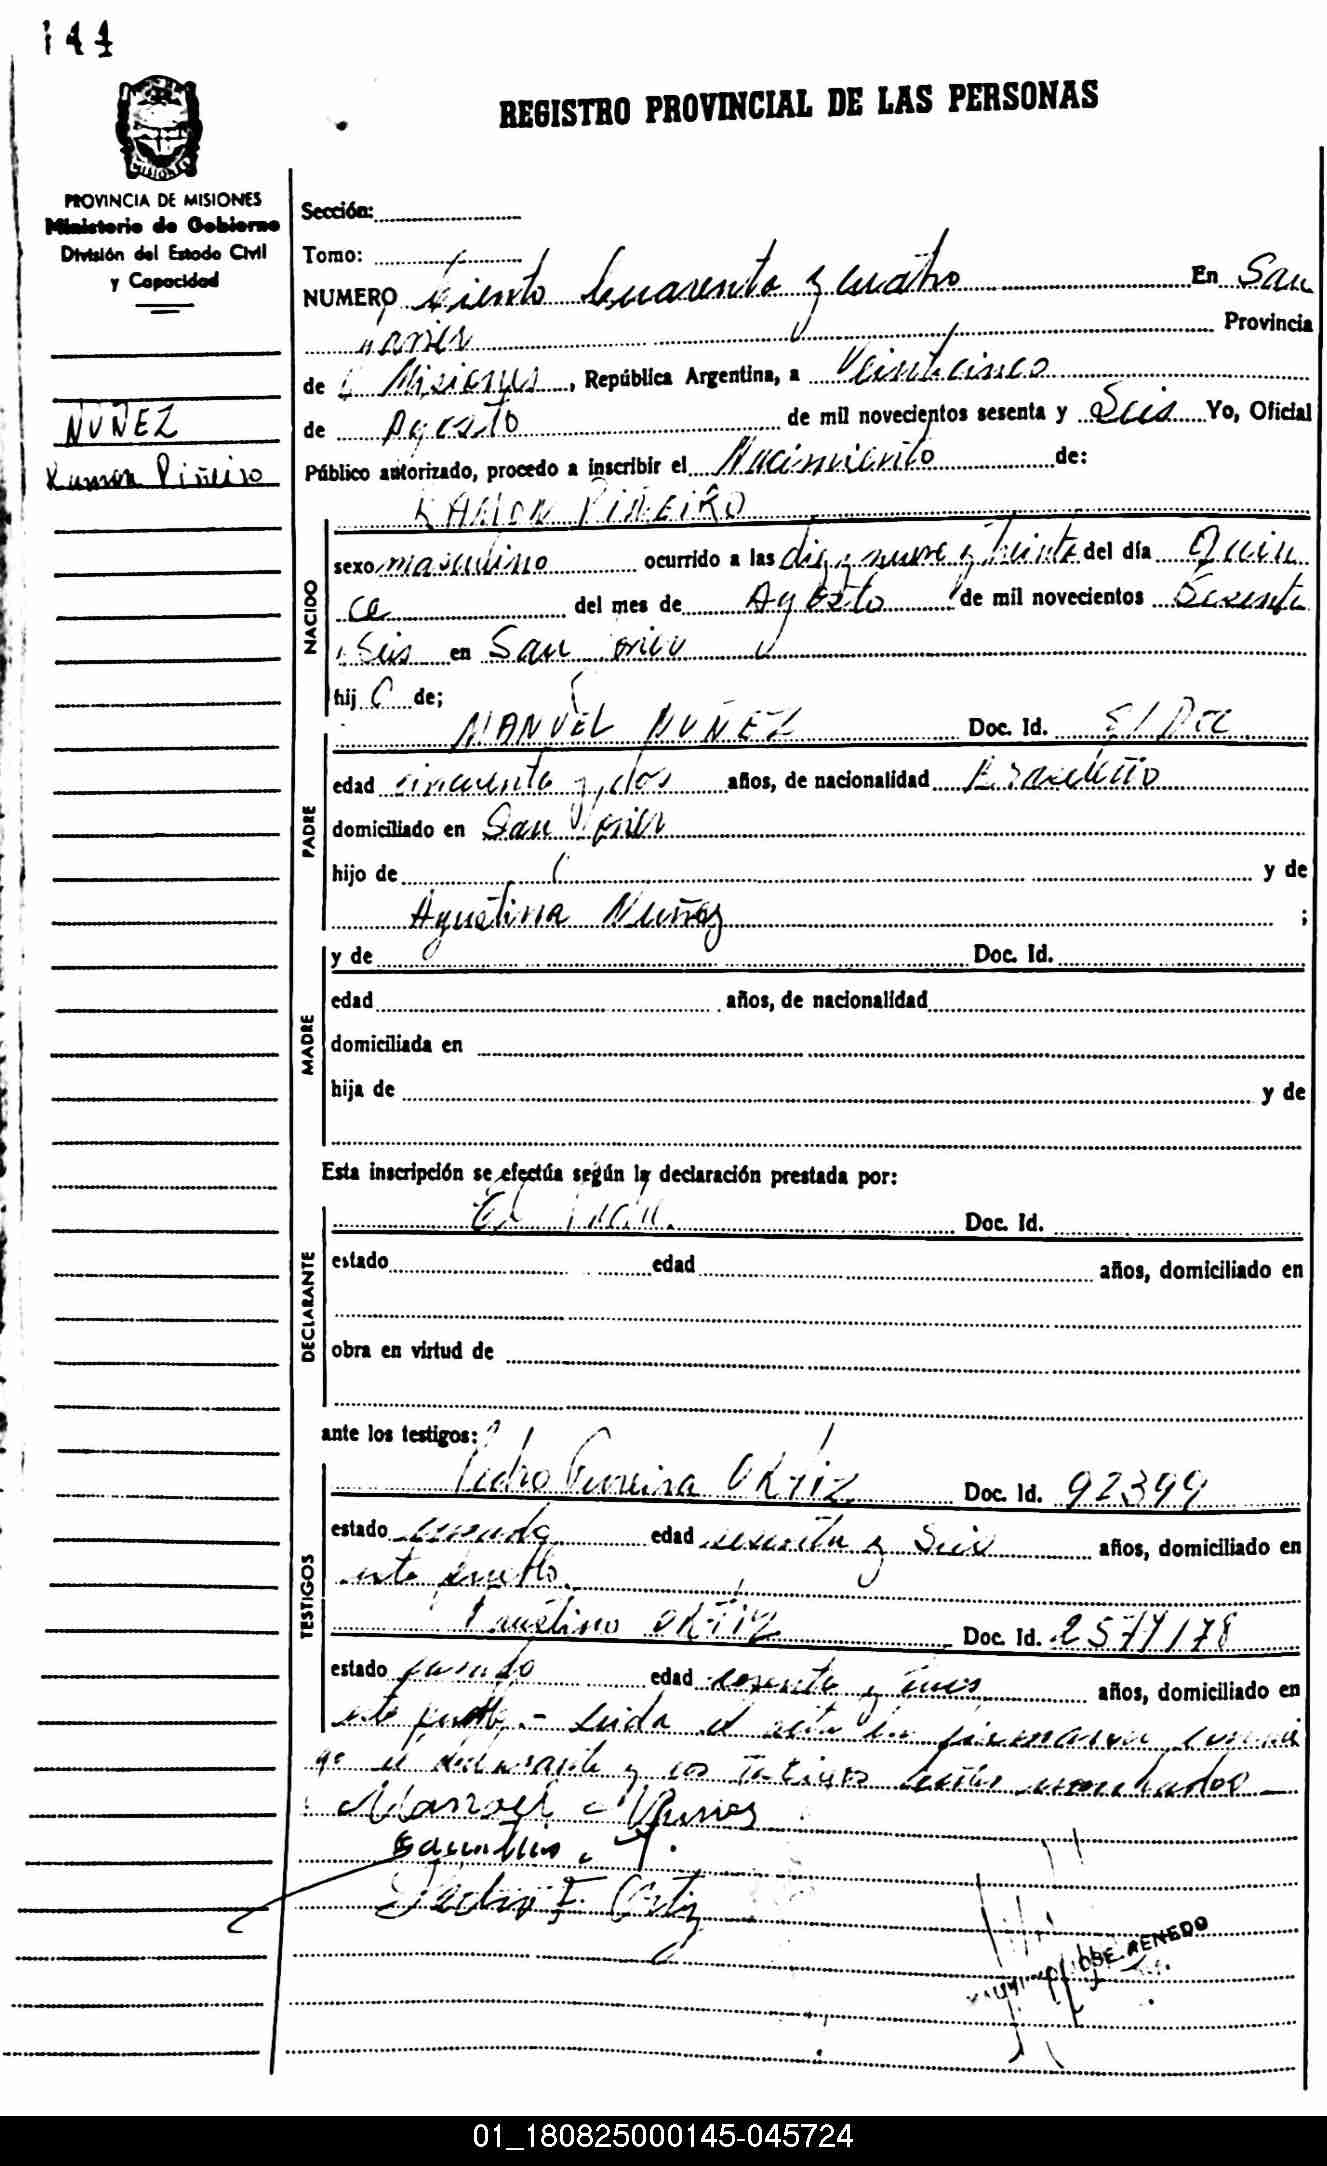 144
REGISTRO PROVINCIAL DE LAS PERSONAS
MISIONES
PROVINCIA DE MISIONES
Ministerio de Gobierno
División del Estado Civil
y Capacidad
NUÑEZ
Ramon Piñeiro
Sección:
Tomo:
NUMERO Ciento Cuarenta y cuatro En San
Javier Provincia
de Misiones, República Argentina, a Veinticinco
de Agosto de mil novecientos sesenta y Seis Yo, Oficial
Público autorizado, procedo a inscribir el Nacimiento de:
RAMON PIÑEIRO
NACIDO
sexo masculino ocurrido a las diez y nueve y treinta del día Quin
ce del mes de Agosto de mil novecientos Sesenta
y Seis en San Javier
hijo de;
PADRE
MANUEL NUÑEZ Doc. Id.
edad cincuenta y dos años, de nacionalidad Brasileño
domiciliado en San Javier
hijo de y de
Agustina Nuñez ;
MADRE
y de Doc. Id.
edad años, de nacionalidad
domiciliada en
hija de y de
Esta inscripción se efectúa según la declaración prestada por:
DECLARANTE
El Padre. Doc. Id.
estado edad años, domiciliado en
obra en virtud de
ante los testigos:
TESTIGOS
Pedro Ferreira ORTIZ Doc. Id. 92399
estado casado edad sesenta y Seis años, domiciliado en
este pueblo.
Faustino ORTIZ Doc. Id.
estado casado edad años, domiciliado en
este pueblo.- Leida el acta la firmaron conmi
go el declarante y los testigos
Manoel Nunes
Pedro F. Ortiz
JOSE RENEDO
01_180825000145-045724